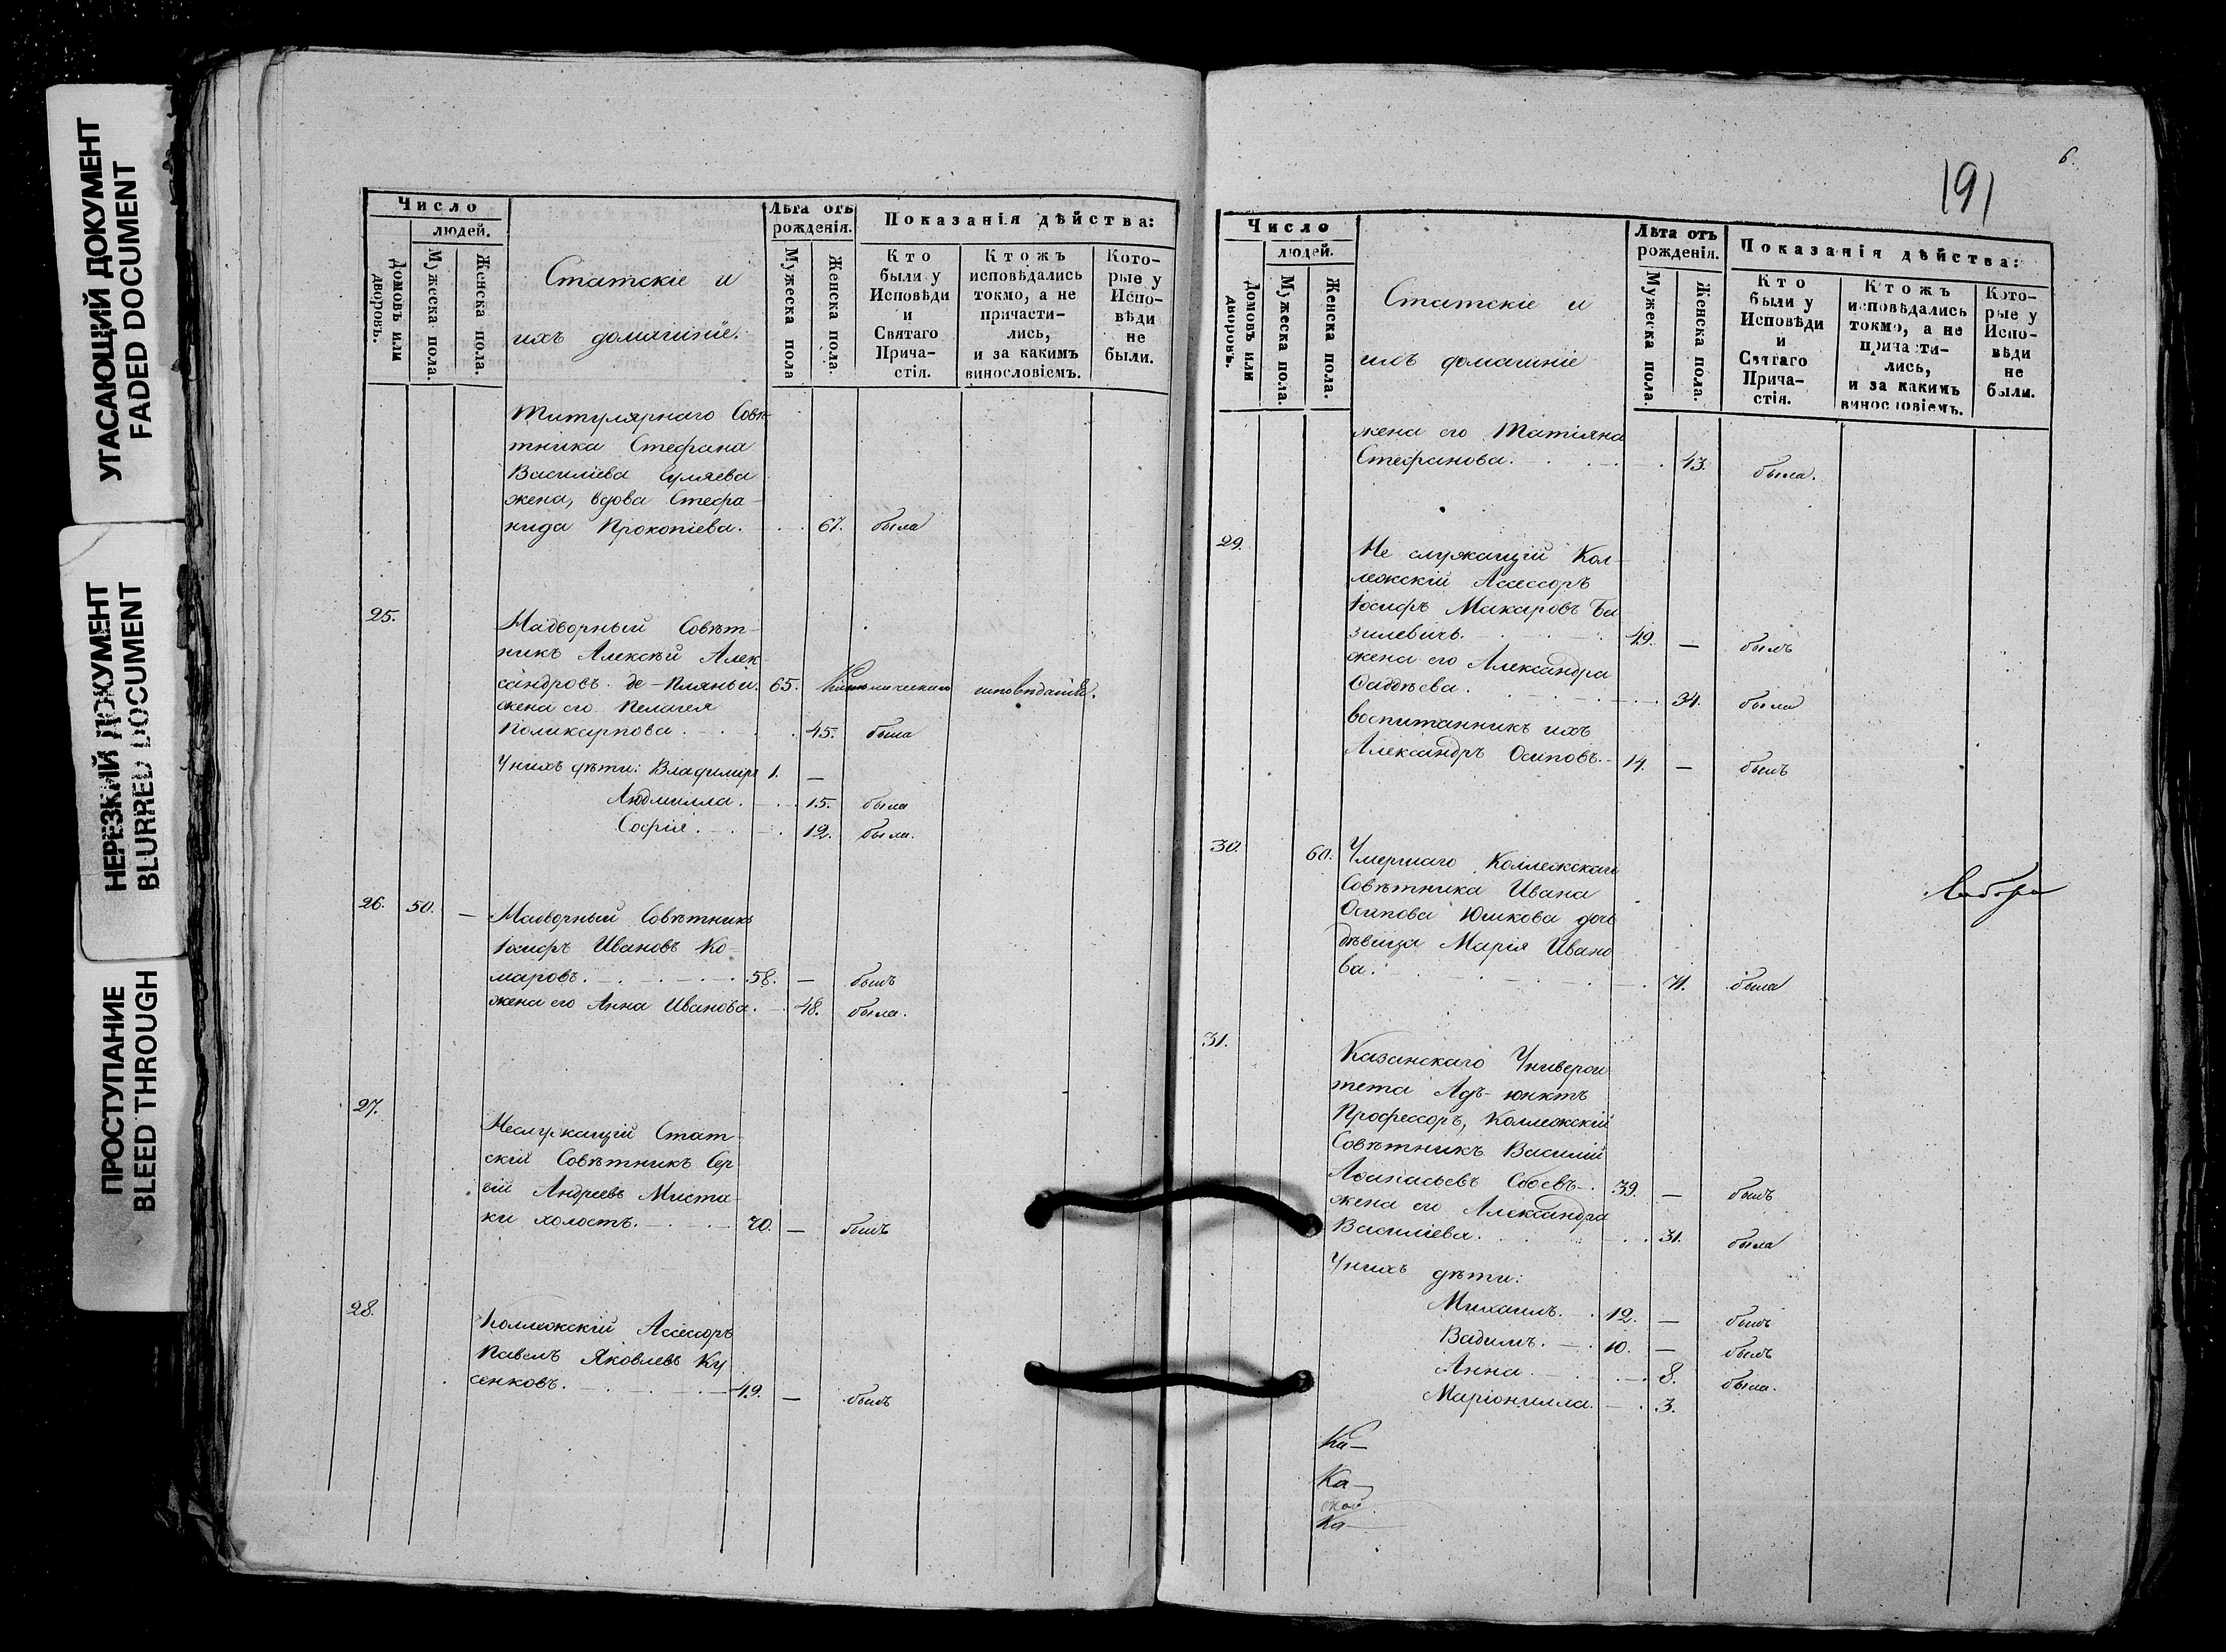 УГАСАЮЩИЙ ДОКУМЕНТ
FADED DOCUMENT
НЕРЕЗКИЙ ДОКУМЕНТ
BLURRED DOCUMENT
ПРОСТУПАНИЕ
BLEED THROUGH
Число
людей.
Домовъ или дворовъ.
Мужеска пола.
Женска пола.
Статскіе и
ихъ домашніе.
Лѣта отъ рожденія.
Мужеска пола
Женска пола.
Показанія дѣйства:
Кто были у Исповѣди и Святаго Прича-стія.
Ктожъ исповѣдались токмо, а не причасти-лись, и за какимъ винословіемъ.
Кото-рые у Испо-вѣди не были.
Титулярнаго Совѣ-
тника Стефана
Василіева
жена, вдова Стефа-
нида Прокопіева. 67. была
25. Надворный Совѣт-
никъ Алексѣй Алек-
сандровъ де-Пляньи. 65. Католическаго исповѣданія.
жена его Пелагея
Поликарпова. 45. была
У нихъ дѣти: Владиміръ 1. —
Людмилла. 15. была
Софія. 12. была.
26. 50. — Надворный Совѣтникъ
Іосифъ Ивановъ Ко-
маровъ. 58. — былъ
жена его Анна Иванова. 48. была.
27. Неслужащій Стат-
скій Совѣтникъ Сер-
гій Андреевъ Миста-
ки холостъ. 70. — былъ
28. Коллежскій Ассесоръ
Павелъ Яковлевъ Ку
сенковъ. 49. — былъ
6.
191
Число
людей.
Домовъ или дворовъ.
Мужеска пола.
Женска пола.
Статскіе и
ихъ домашніе
Лѣта отъ рожденія.
Мужеска пола.
Женска пола.
Показанія дѣйства:
Кто были у Исповѣди и Святаго Прича-стія.
Ктожъ исповѣдались токмо, а не причасти-лись, и за какимъ винословіемъ.
Кото-рые у Испо-вѣди не были.
жена его Татіяна
Стефанова. 43. была.
29. Не служащій Кол-
лежскій Ассессоръ
Іосифъ Макаровъ Ба
зилевичъ. 49. — былъ
жена его Александра
Фаддѣева. 34. была
воспитанникъ ихъ
Александръ Осиповъ. 14. — былъ
30. 60. Умершаго Коллежскаго
Совѣтника Ивана
Осипова Юшкова дочь
дѣвица Марія Ивано
ва. 71. была
31. Казанскаго Универси
тета Адъ-юнктъ
Профессоръ, Коллежскій
Совѣтникъ Василій
Аѳанасьевъ Сбоевъ. 39. — былъ
жена его Александра
Василіева. 31. была
У нихъ дѣти:
Михаилъ. 12. — былъ
Вадимъ. 10. — былъ
Анна. 8. была.
Маріонилла. 3.
Ка—
Ка—
Ка—